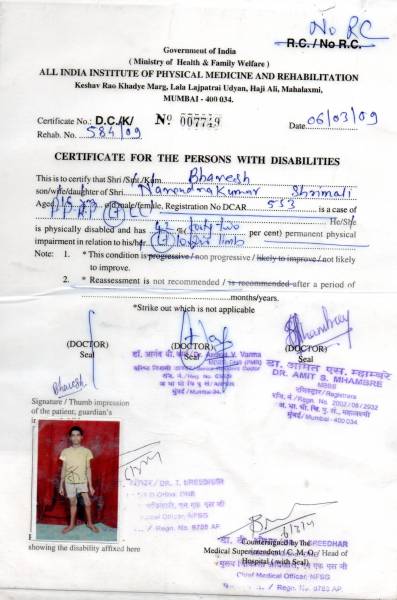 No RC
R.C. / No R.C.
Government of India
( Ministry of Health & Family Welfare )
ALL INDIA INSTITUTE OF PHYSICAL MEDICINE AND REHABILITATION
Keshav Rao Khadye Marg, Lala Lajpatrai Udyan, Haji Ali, Mahalaxmi,
MUMBAI - 400 034.
Certificate No.: D.C./K/ No. 007749 Date 06/03/09
Rehab. No. 584/09
CERTIFICATE FOR THE PERSONS WITH DISABILITIES
This is to certify that Shri / Smt./Kum. Bhavesh
son/wife/daughter of Shri Narendrakumar Shrimali
Aged old male/female, Registration No DCAR 553 is a case of
PPRP He/She
is physically disabled and has 42 % (forty-two per cent) permanent physical
impairment in relation to his/her lower limb
Note: 1. * This condition is progressive / non progressive / likely to improve / not likely
to improve.
2. * Reassessment is not recommended / is recommended after a period of
months/years.
*Strike out which is not applicable
(DOCTOR) (DOCTOR) (DOCTOR)
Seal Seal Seal
Varma
डा. अमित एस. म्हाम्बरे
DR. AMIT S. MHAMBRE
MBBS
रजिस्ट्रार / Registrara
रजि. नं. / Regn. No. 2002 / 08 / 2932
मुंबई / Mumbai - 400 034
Bhavesh
Signature / Thumb impression
of the patient, guardian's
DR. T. SREEDHAR
Medical Officer, NFSG
Regn. No. 9785 AP
showing the disability affixed here
SREEDHAR
Countersigned by the
Medical Superintendent / C.M.O. / Head of
Hospital (with Seal)
Chief Medical Officer, NFSG
Regn. No. 9785 AP